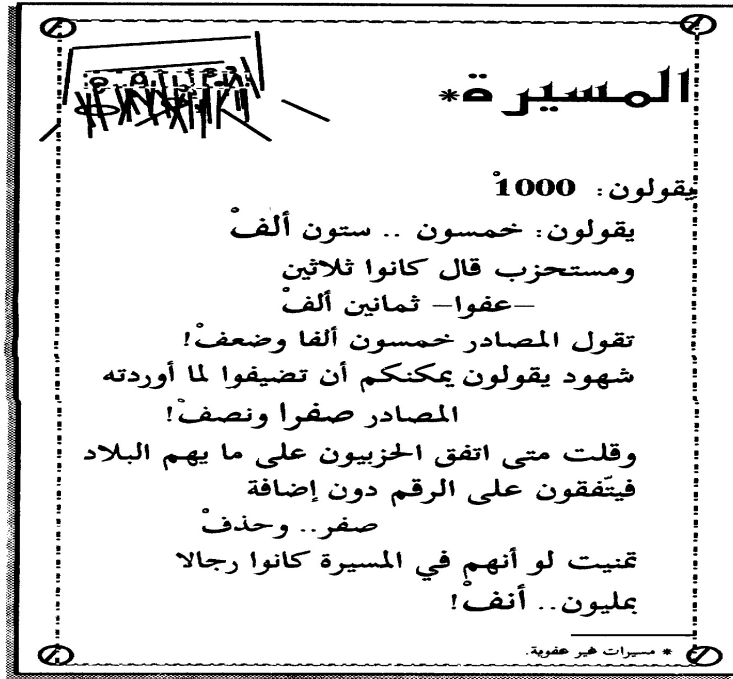 المسيرة*
يقولون: 1000ْ
يقولون: خمسون .. ستون ألفْ
ومستحزب قال كانوا ثلاثين
–عفوا– ثمانين ألفْ
تقول المصادر خمسون ألفا وضعفْ!
شهود يقولون يمكنكم أن تضيفوا لما أوردته
المصادر صفرا ونصفْ!
وقلت متى اتفق الحزبيون على ما يهم البلاد
فيتّفقون على الرقم دون إضافة
صفر.. وحذفْ
تمنيت لو أنهم في المسيرة كانوا رجالا
بمليون.. أنفْ!
* مسيرات غير عفوية.